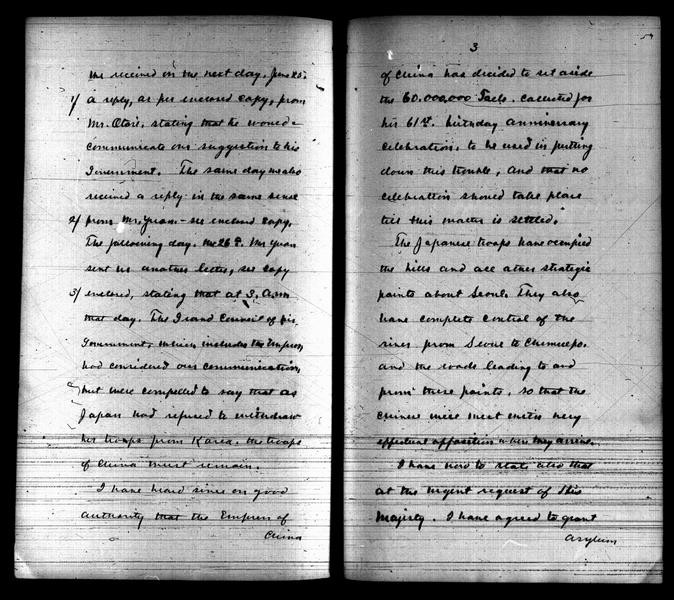 We received on the next day, June 25,
1/ a reply, as per enclosed copy, from
Mr. Otori, stating that he would
communicate our suggestion to his
Government. The same day we also
received a reply in the same sense
2/ from Mr. Yuan - see enclosed copy.
The following day, the 26th. Mr Yuan
sent us another letter, see copy
3/ enclosed, stating that at 3. A.m
that day. The Grand Council of his
Government, which includes the Emperor,
had considered our communication,
but were compelled to say that as
Japan had refused to withdraw
her troops from Korea, the troops
of China must remain.
I have heard since on good
authority that the Empress of
China
3
of China has decided to set aside
the 60.000,000 Taels. collected for
his 61st. birthday anniversary
celebration, to be used in putting
down this trouble, and that no
celebration should take place
till this matter is settled.
The Japanese troops have occupied
the hills and all other strategic
points about Seoul. They also
have complete control of the
river from Seoul to Chemulpo.
and the roads leading to and
from these points, so that the
Chinese will meet with very
effectual opposition when they arrive.
I have now to state also that
at the urgent request of His
Majesty. I have agreed to grant
asylum